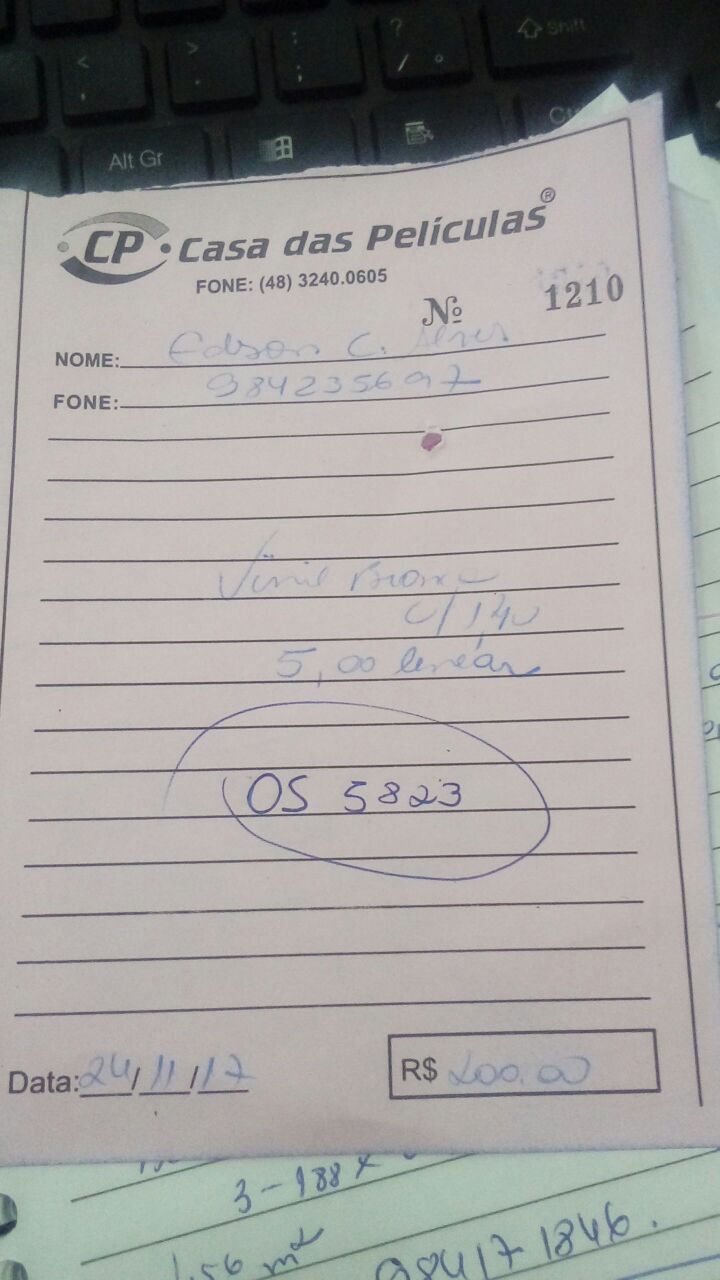 < ,
> .
: ;
? / °
Shift
Alt Gr
CP Casa das Películas®
FONE: (48) 3240.0605
Nº 1210
NOME: Edson C. Alves
FONE: 984235697
Vinil Branco
c/ 1,40
5,00 linear
OS 5823
Data: 24/11/17
R$ 200.00
3-188 x
,56 m²
98417 1846.